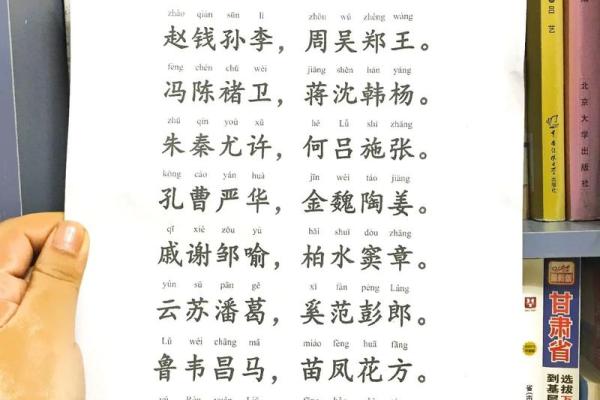 zhào qián sūn lǐ zhōu wú zhèng wáng
赵钱孙李，周吴郑王。
féng chén chǔ wèi jiǎng shěn hán yáng
冯陈褚卫，蒋沈韩杨。
zhū qín yóu xǔ hé Lǚ shī zhāng
朱秦尤许，何吕施张。
kǒng cáo yán huà jīn wèi táo jiāng
孔曹严华，金魏陶姜。
qī xiè zōu yù bǎi shuǐ dòu zhāng
戚谢邹喻，柏水窦章。
yún sū pān gě xī fàn péng Láng
云苏潘葛，奚范彭郎。
Lǔ wéi chāng mǎ miáo fèng huā fāng
鲁韦昌马，苗凤花方。
吕艺
北京大学出版社
甘肃省
选拔
到基层